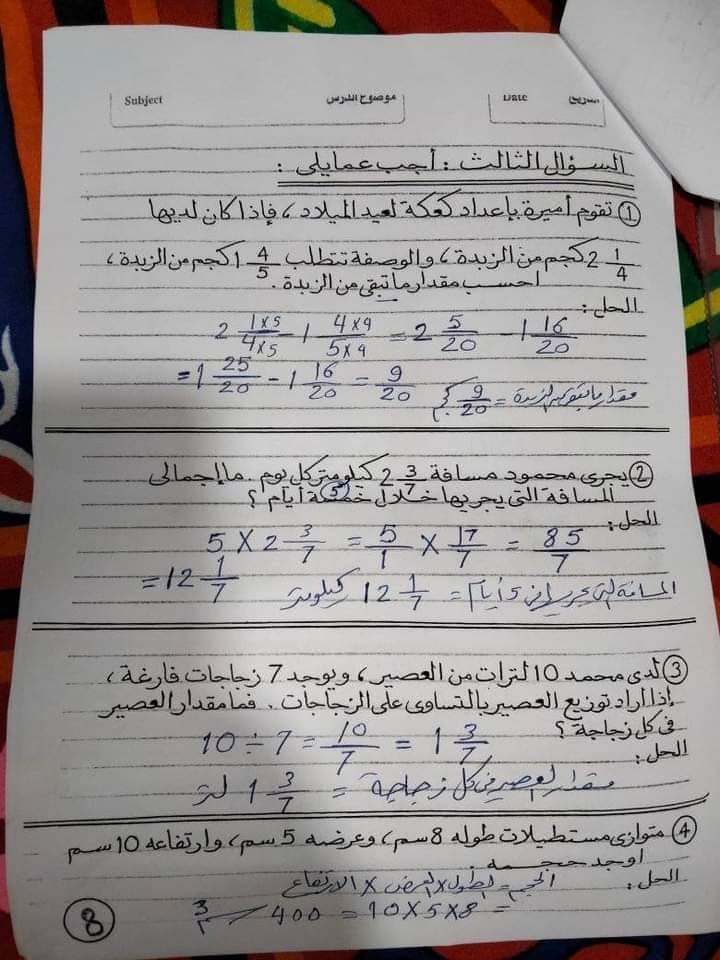 Subject موضوع الدرس Date التاريخ
السؤال الثالث : أجب عما يلى :
① تقوم أميرة بإعداد كعكة لعيد الميلاد ، فإذا كان لديها
2 1/4 كجم من الزبدة ، والوصفة تتطلب 1 4/5 كجم من الزبدة ،
احسب مقدار ما تبقى من الزبدة .
الحل :
2 1×5/4×5 - 1 4×9/5×9 = 2 5/20 - 1 16/20
= 1 25/20 - 1 16/20 = 9/20
مقدار ما تبقى من الزبدة = 9/20 كجم
② يجرى محمود مسافة 2 3/7 كيلومتر كل يوم . ما إجمالى
المسافة التى يجريها خلال خمسة أيام ؟
5
الحل :
5 × 2 3/7 = 5/1 × 17/7 = 85/7
= 12 1/7
المسافة التى يجريها فى 5 أيام = 12 1/7 كيلومتر
③ لدى محمد 10 لترات من العصير ، ويوجد 7 زجاجات فارغة ،
إذا أراد توزيع العصير بالتساوى على الزجاجات . فما مقدار العصير
فى كل زجاجة ؟
10 ÷ 7 = 10/7 = 1 3/7
الحل :
مقدار العصير فى كل زجاجة = 1 3/7 لتر
④ متوازى مستطيلات طوله 8 سم ، وعرضه 5 سم ، وارتفاعه 10 سم
اوجد حجمه .
الحل : الحجم = الطول × العرض × الارتفاع
= 8 × 5 × 10 = 400 سم³
8